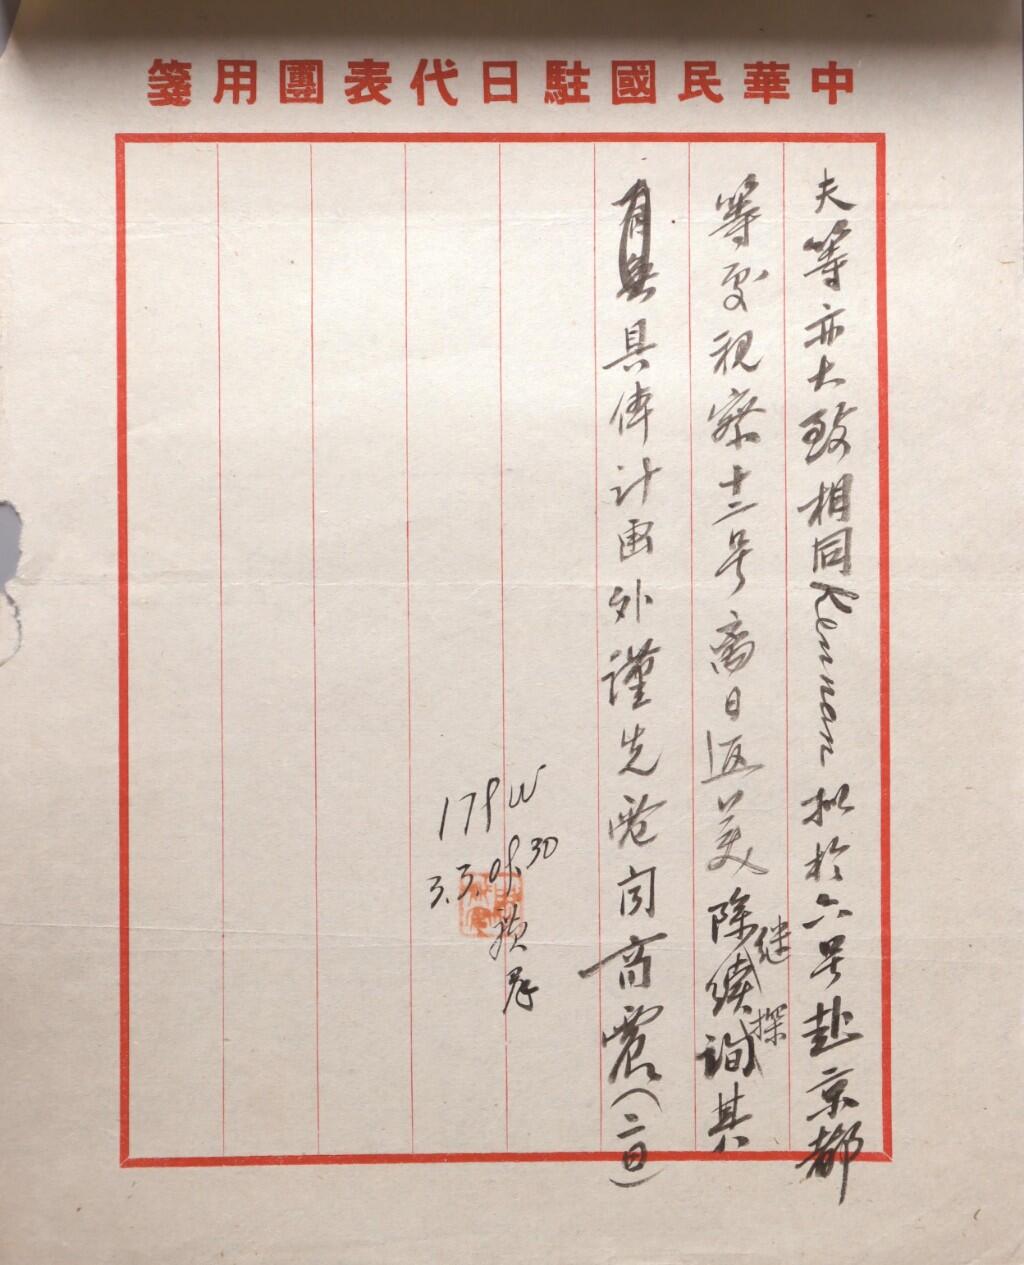 中華民國駐日代表團用箋
夫等亦大致相同Kennan拟於六号赴京都
等处視察十二号离日返美除續詢其
继
探
具体計画外謹先电商震(二日)
179W
3.3. 30